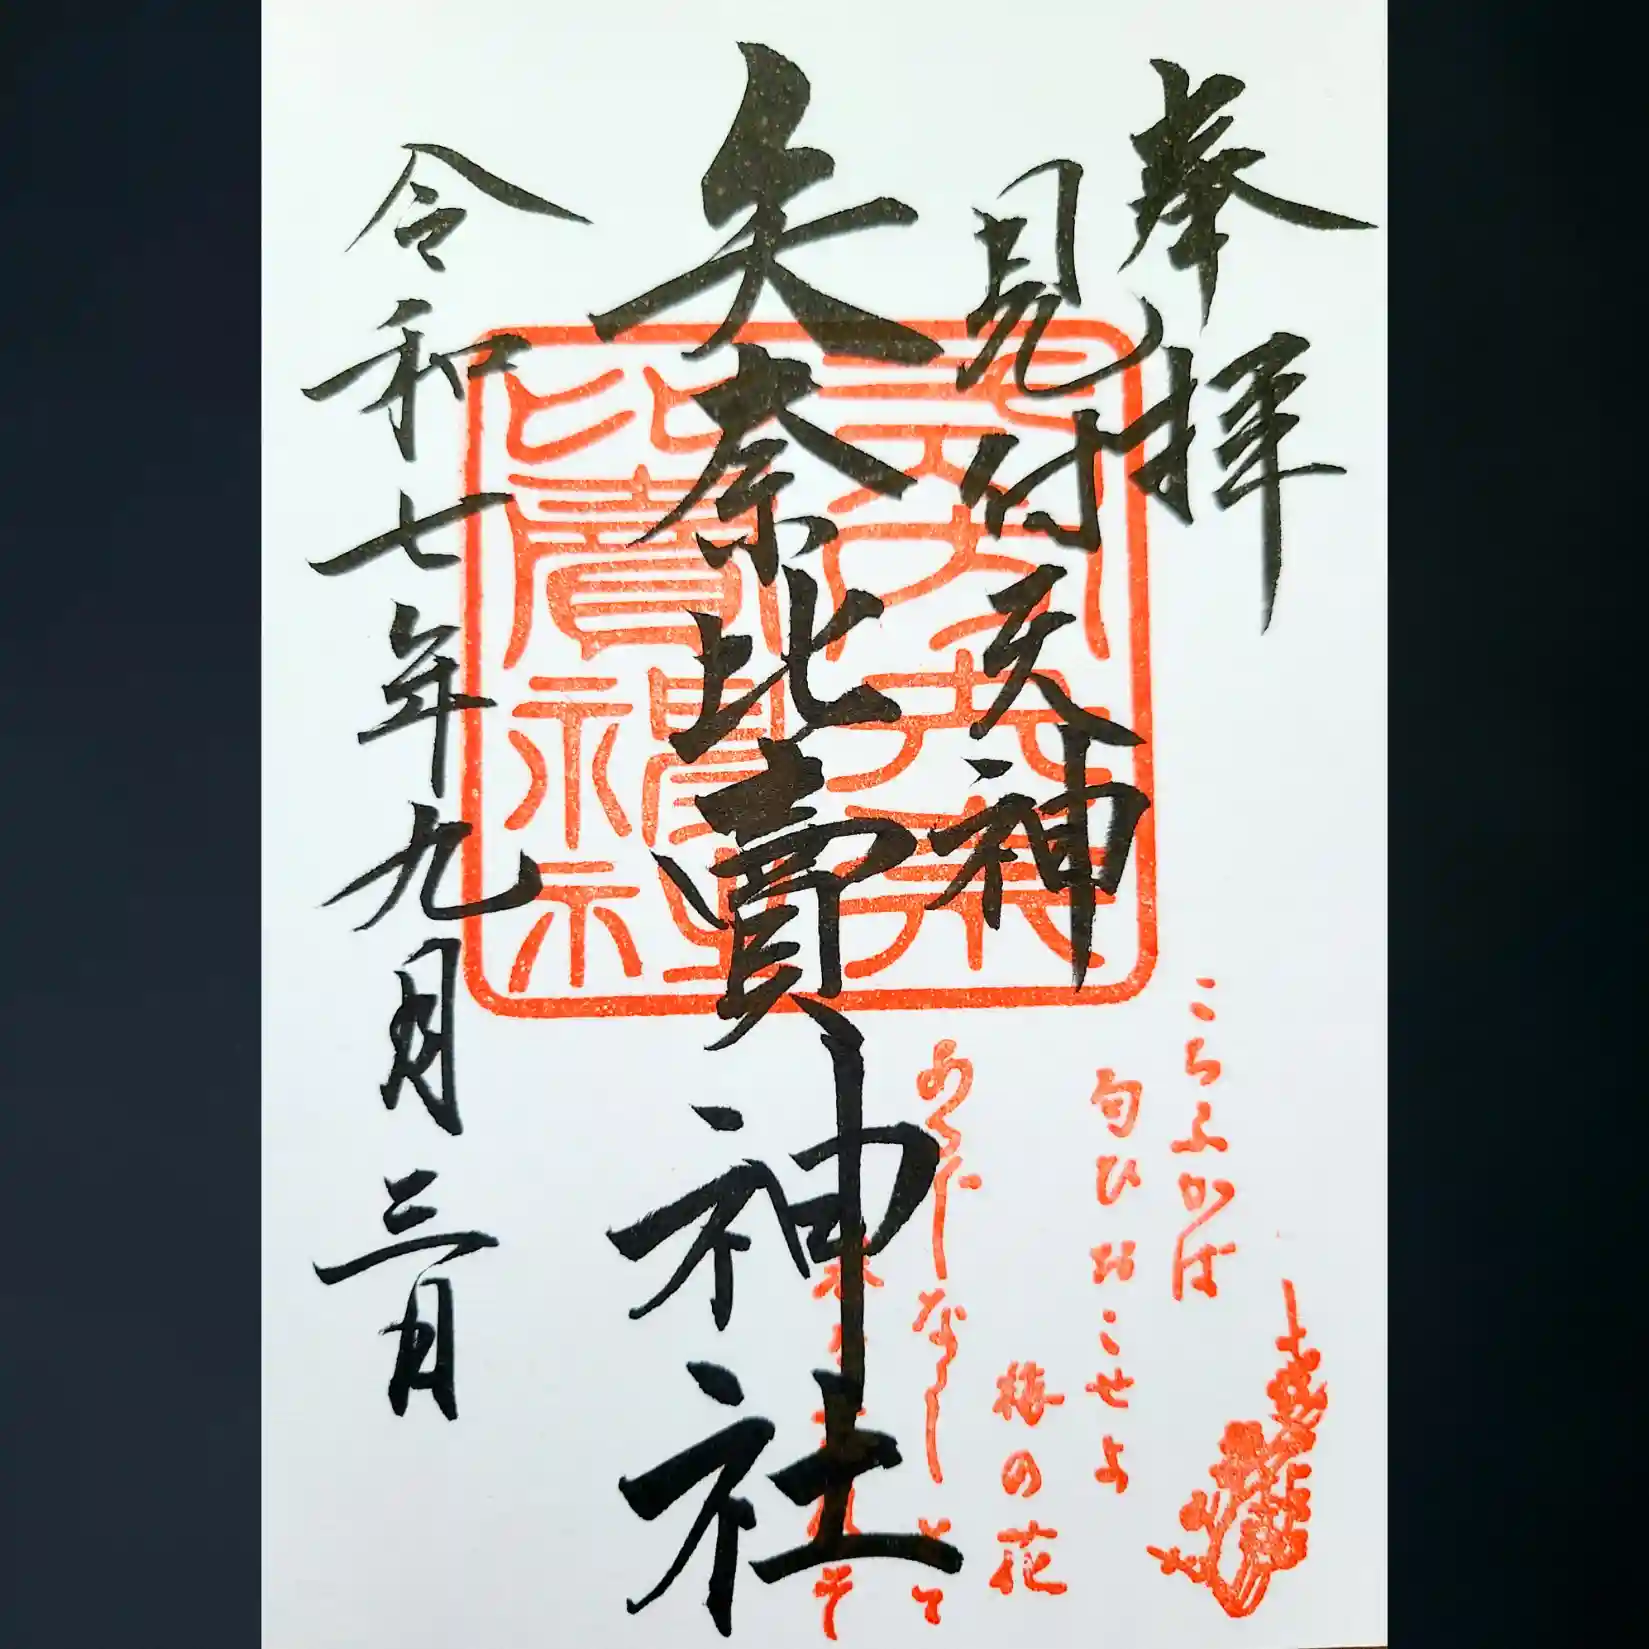 奉拝
見付天神
矢奈比賣神社
令和七年九月三日
矢奈
比賣神社
こちふかば
匂ひおこせよ
梅の花
あるじなしとて